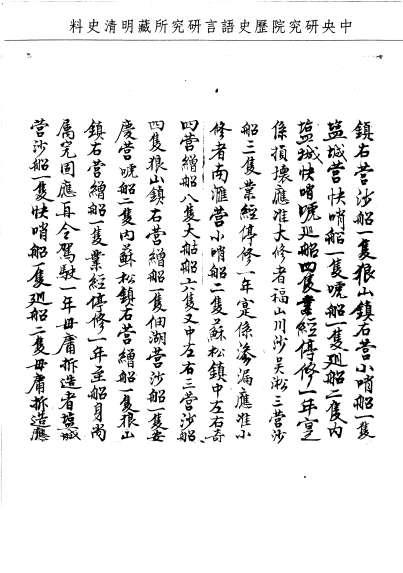 中央研究院歷史語言研究所藏明清史料
鎮右營沙船一隻狼山鎮右營小哨船一隻
鹽城營快哨船一隻唬船一隻廵船二隻內
鹽城快哨唬廵船四隻業經停修一年寔
係損壞應准大修者福山川沙吳淞三營沙
船三隻業經停修一年寔係滲漏應准小
修者南滙營小哨船二隻蘇松鎮中左右奇
四營繒船八隻大舢船六隻又中左右三營沙船
四隻狼山鎮右營繒船一隻佃湖營沙船一隻安
慶營唬船二隻內蘇松鎮右營繒船一隻狼山
鎮右營繒船一隻業經停修一年至船身尚
属完固應再令駕駛一年毋庸拆造者鹽城
營沙船一隻快哨船一隻廵船二隻毋庸拆造應